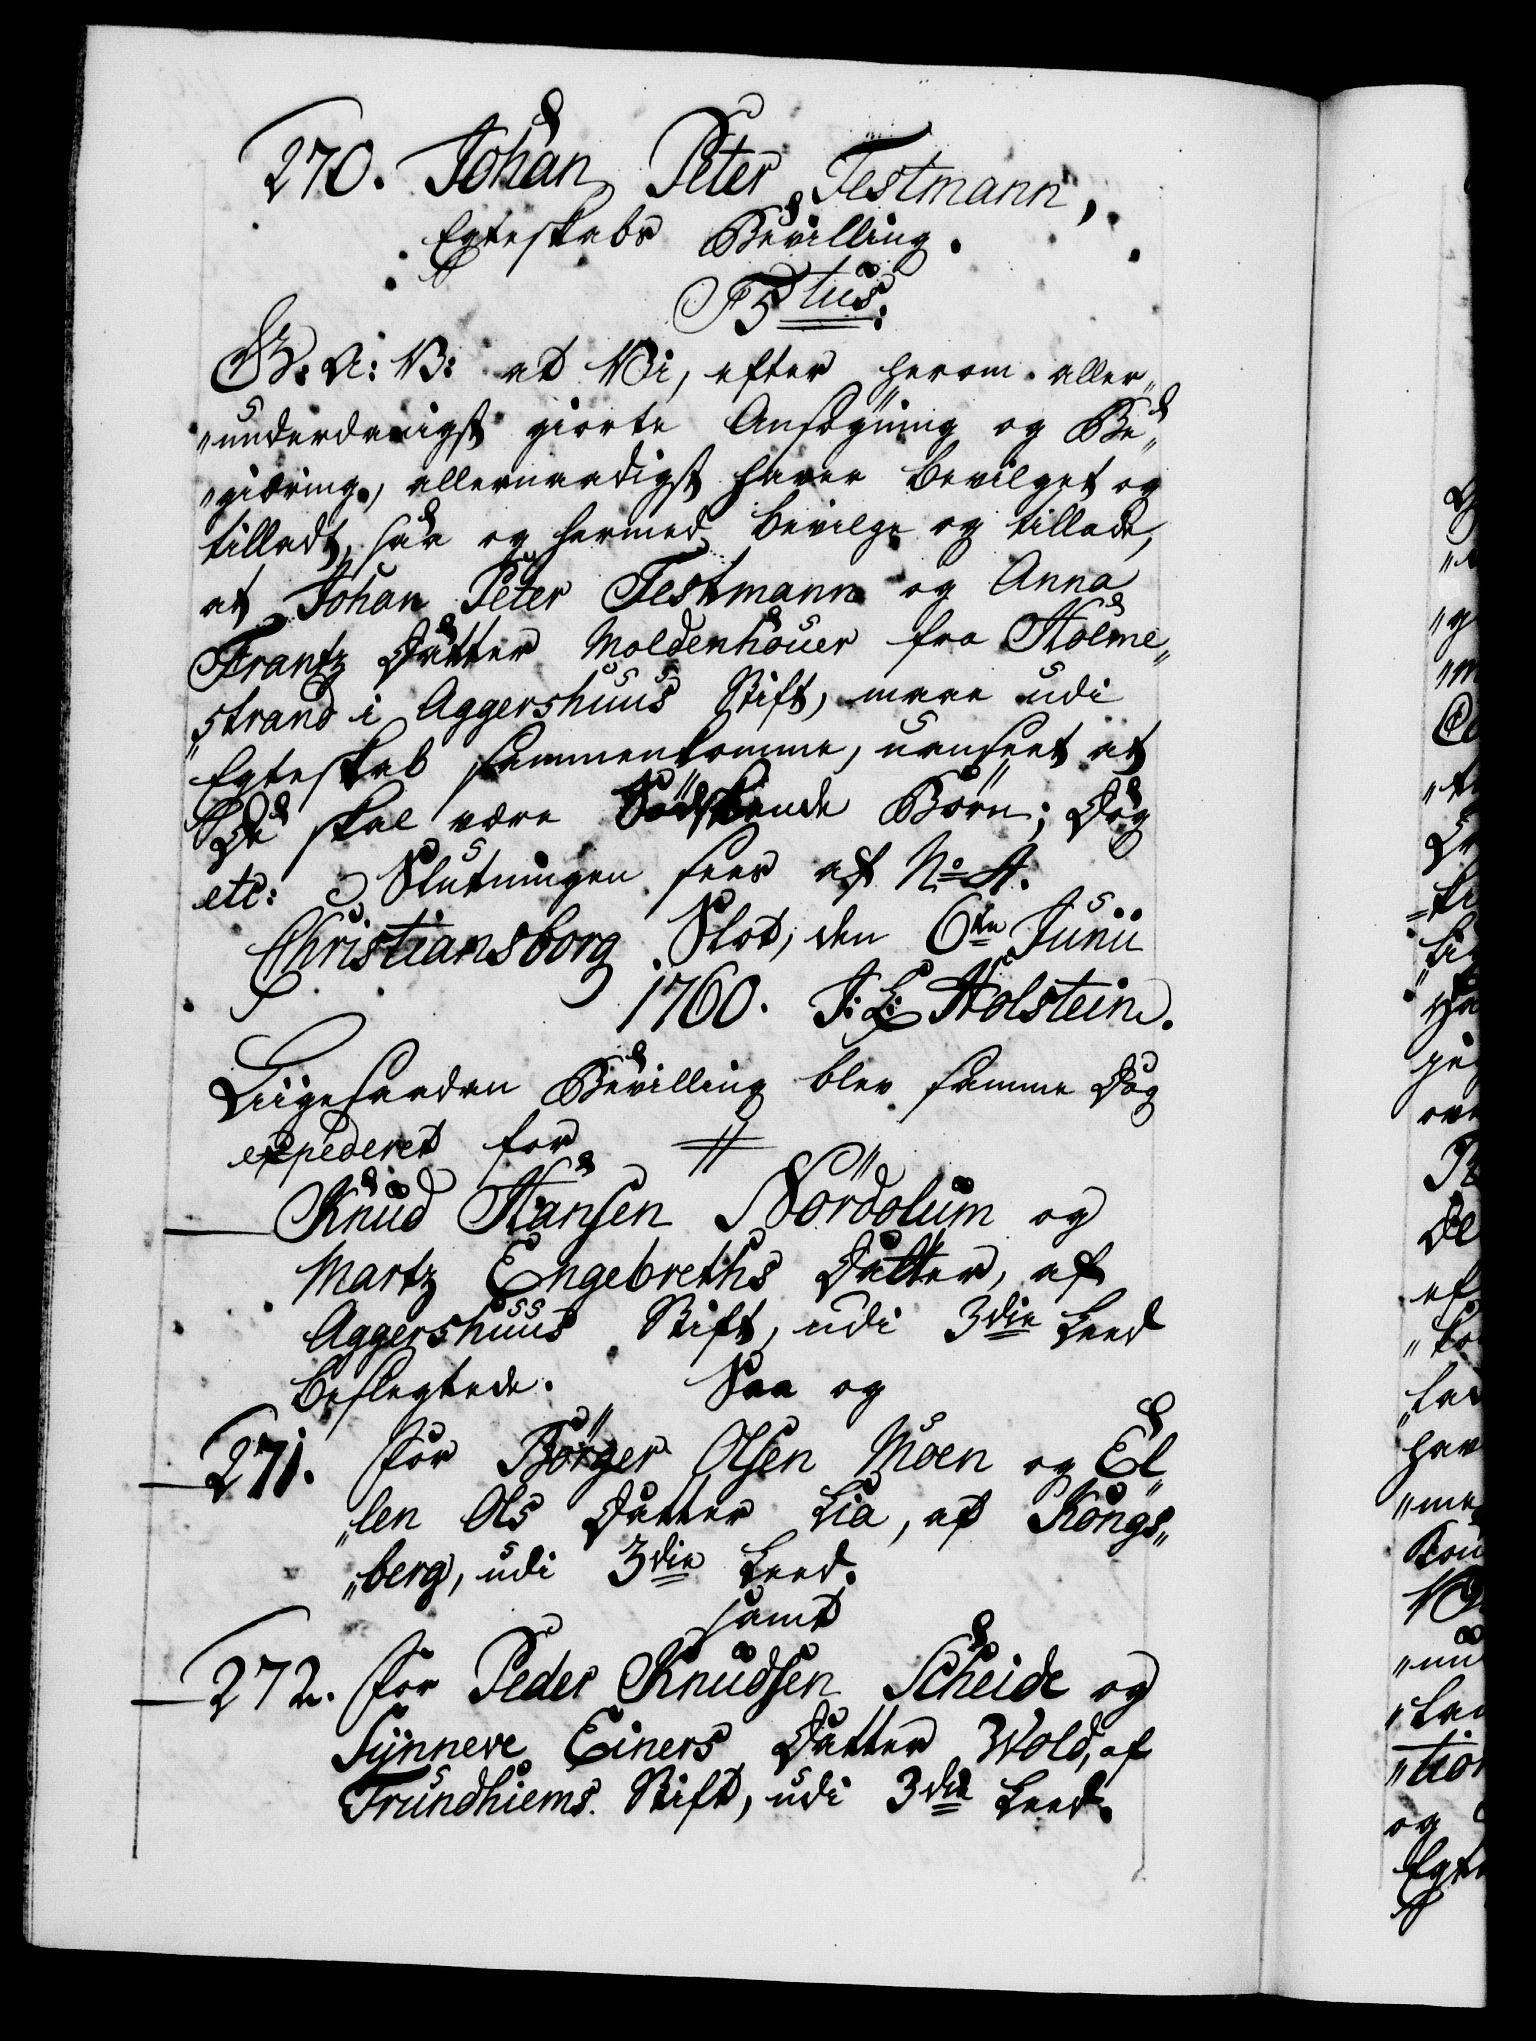 270. Johan Peter Testmann,
Egteskabs Bevilling.
F5tus.
G: A: V: at Vi, efter herom aller„
„underdanigst giorte Ansøgning og Be„
„giæring, allernaadigst haver bevilget og
tilladt, saa og hermed bevilge og tillade,
at Johan Peter Testmann og Anna
Frantz Datter Moldenhouer fra Holme„
„strand i Aggershuus Stift, maae udi
Egteskab sammenkomme, uanseet at
De skal være Södskende Börn; Dog
etc: Slutningen sees af No A.
Christiansborg Slot, den 6te Junii
1760. J: L: Holstein.
Liigesaadan Bevilling blev samme Dag
expederet for
Knud Hansen Nördolum og
Martz Engebreths Datter, af
Aggershuus Stift, udi 3die Leed
beslegtede. Saa og
271. for Börger Olsen Moen og El„
„len Ols Datter Lia, af Kongs„
„berg, udi 3die Leed.
samt
272. for Peder Knudsen Scheide og
Synneve Einers Datter Wold, af
Trundhiems Stift, udi 3die Leed.